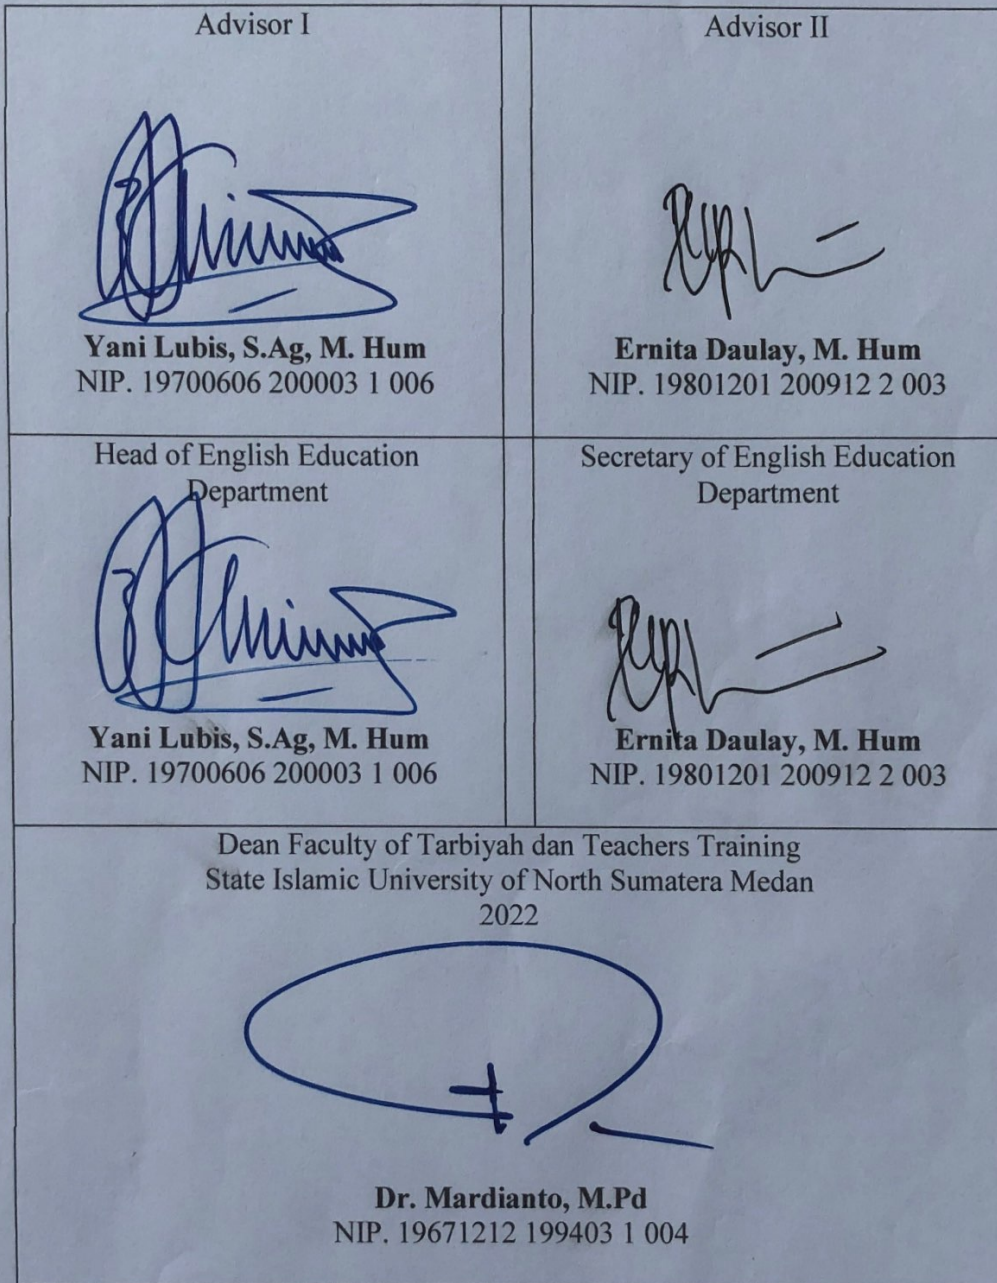 Advisor I
Advisor II
Yani Lubis, S.Ag, M. Hum
NIP. 19700606 200003 1 006
Ernita Daulay, M. Hum
NIP. 19801201 200912 2 003
Head of English Education
Department
Secretary of English Education
Department
Yani Lubis, S.Ag, M. Hum
NIP. 19700606 200003 1 006
Ernita Daulay, M. Hum
NIP. 19801201 200912 2 003
Dean Faculty of Tarbiyah dan Teachers Training
State Islamic University of North Sumatera Medan
2022
Dr. Mardianto, M.Pd
NIP. 19671212 199403 1 004